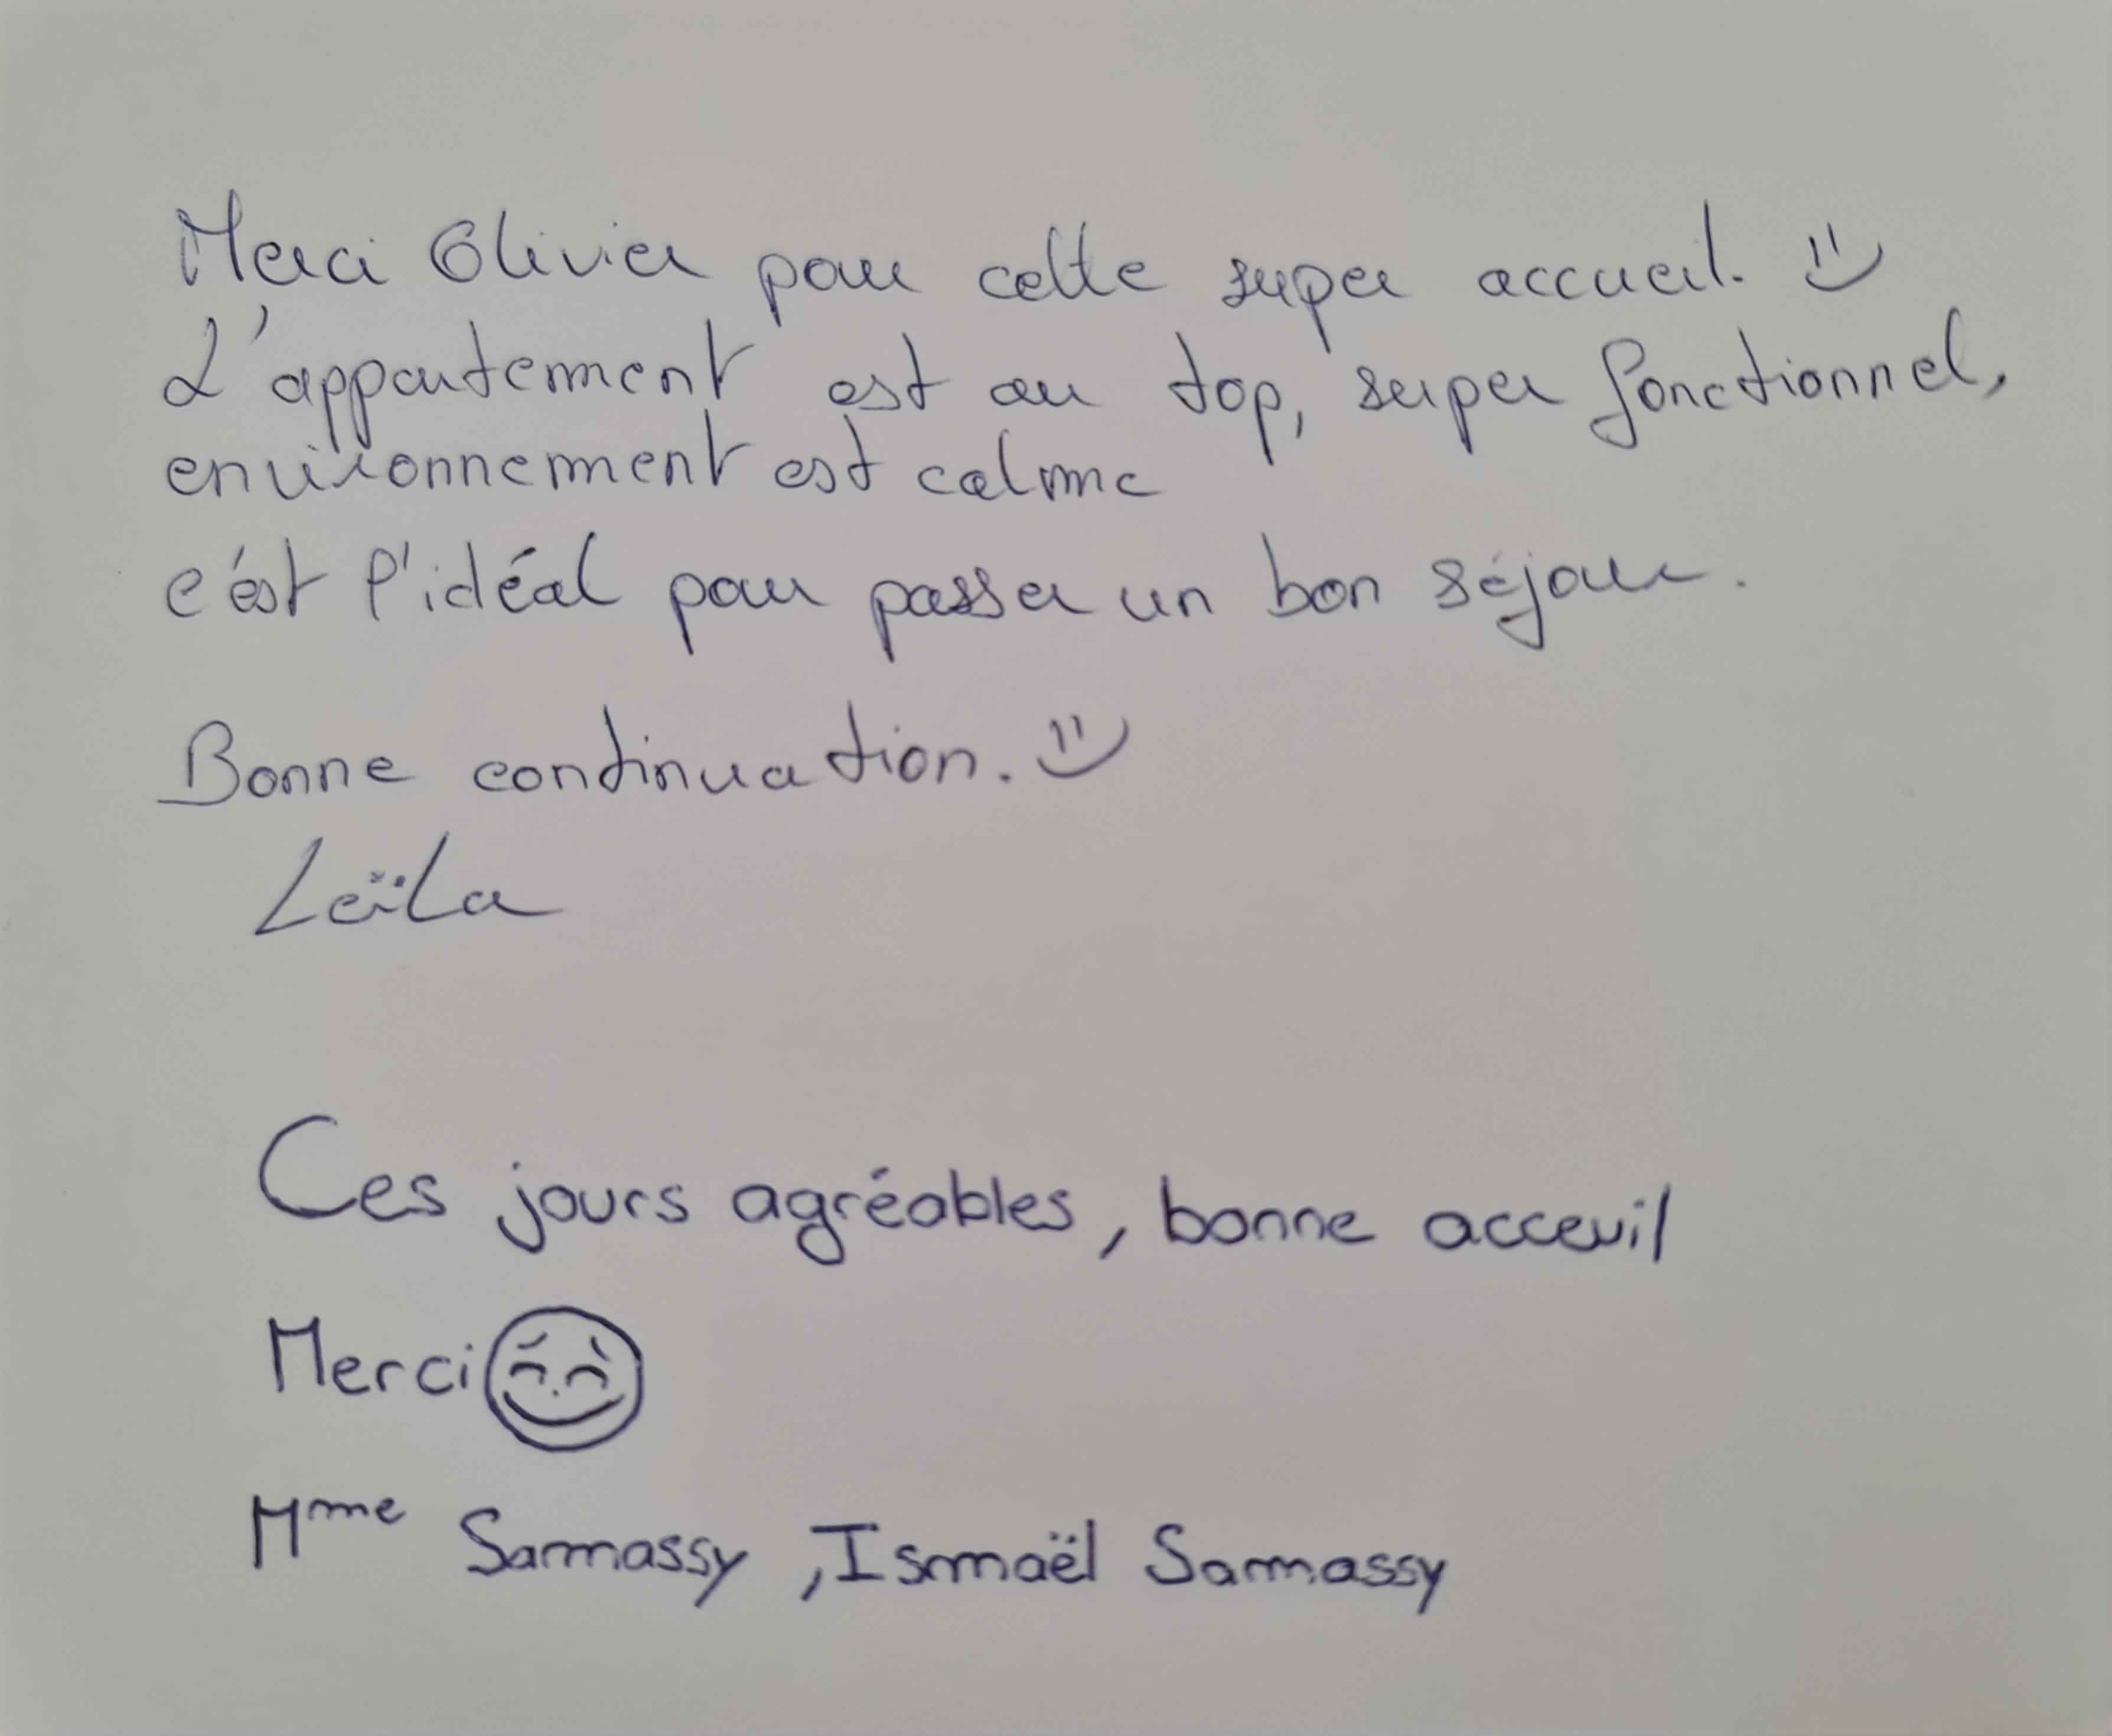 Merci Olivier pour cette super accueil.
L'appartement est au top, super fonctionnel,
environnement est calme
c'est l'idéal pour passer un bon séjour.
Bonne continuation.
Leïla
Ces jours agréables, bonne acceuil
Merci
Mme Sammassy, Ismaël Sammassy